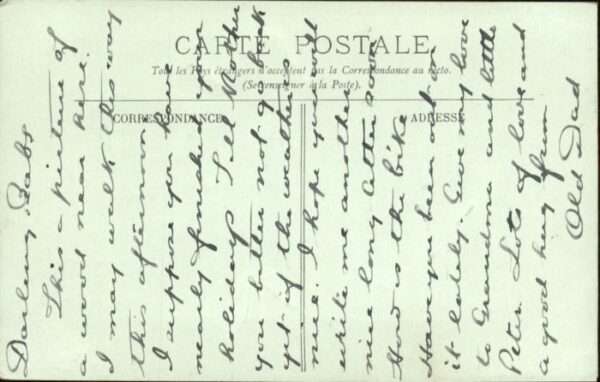 CARTE POSTALE
Tous les Pays étrangers n'acceptent pas la Correspondance au recto.
(Se renseigner à la Poste).
CORRESPONDANCE
ADRESSE
Darling Babs
This a picture of
a wood near here.
I may walk this way
this afternoon
I suppose you have
nearly finished your
holidays Tell Mother
you better not go back
yet if the weather is
nice. I hope you will
write me another
nice long letter soon
How is the bike
Have you been out on
it lately. Give my love
to Grandma and little
Peter Lots of love and
a good hug from
Old Dad